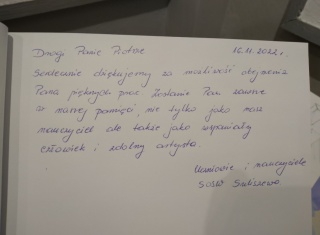 Drogi Panie Piotrze 16.11.2022 r.
Serdecznie dziękujemy za możliwość obejrzenia
Pana pięknych prac. Zostanie Pan zawsze
w naszej pamięci, nie tylko jako nasz
nauczyciel ale także jako wspaniały
człowiek i zdolny artysta.
Uczniowie i nauczyciele